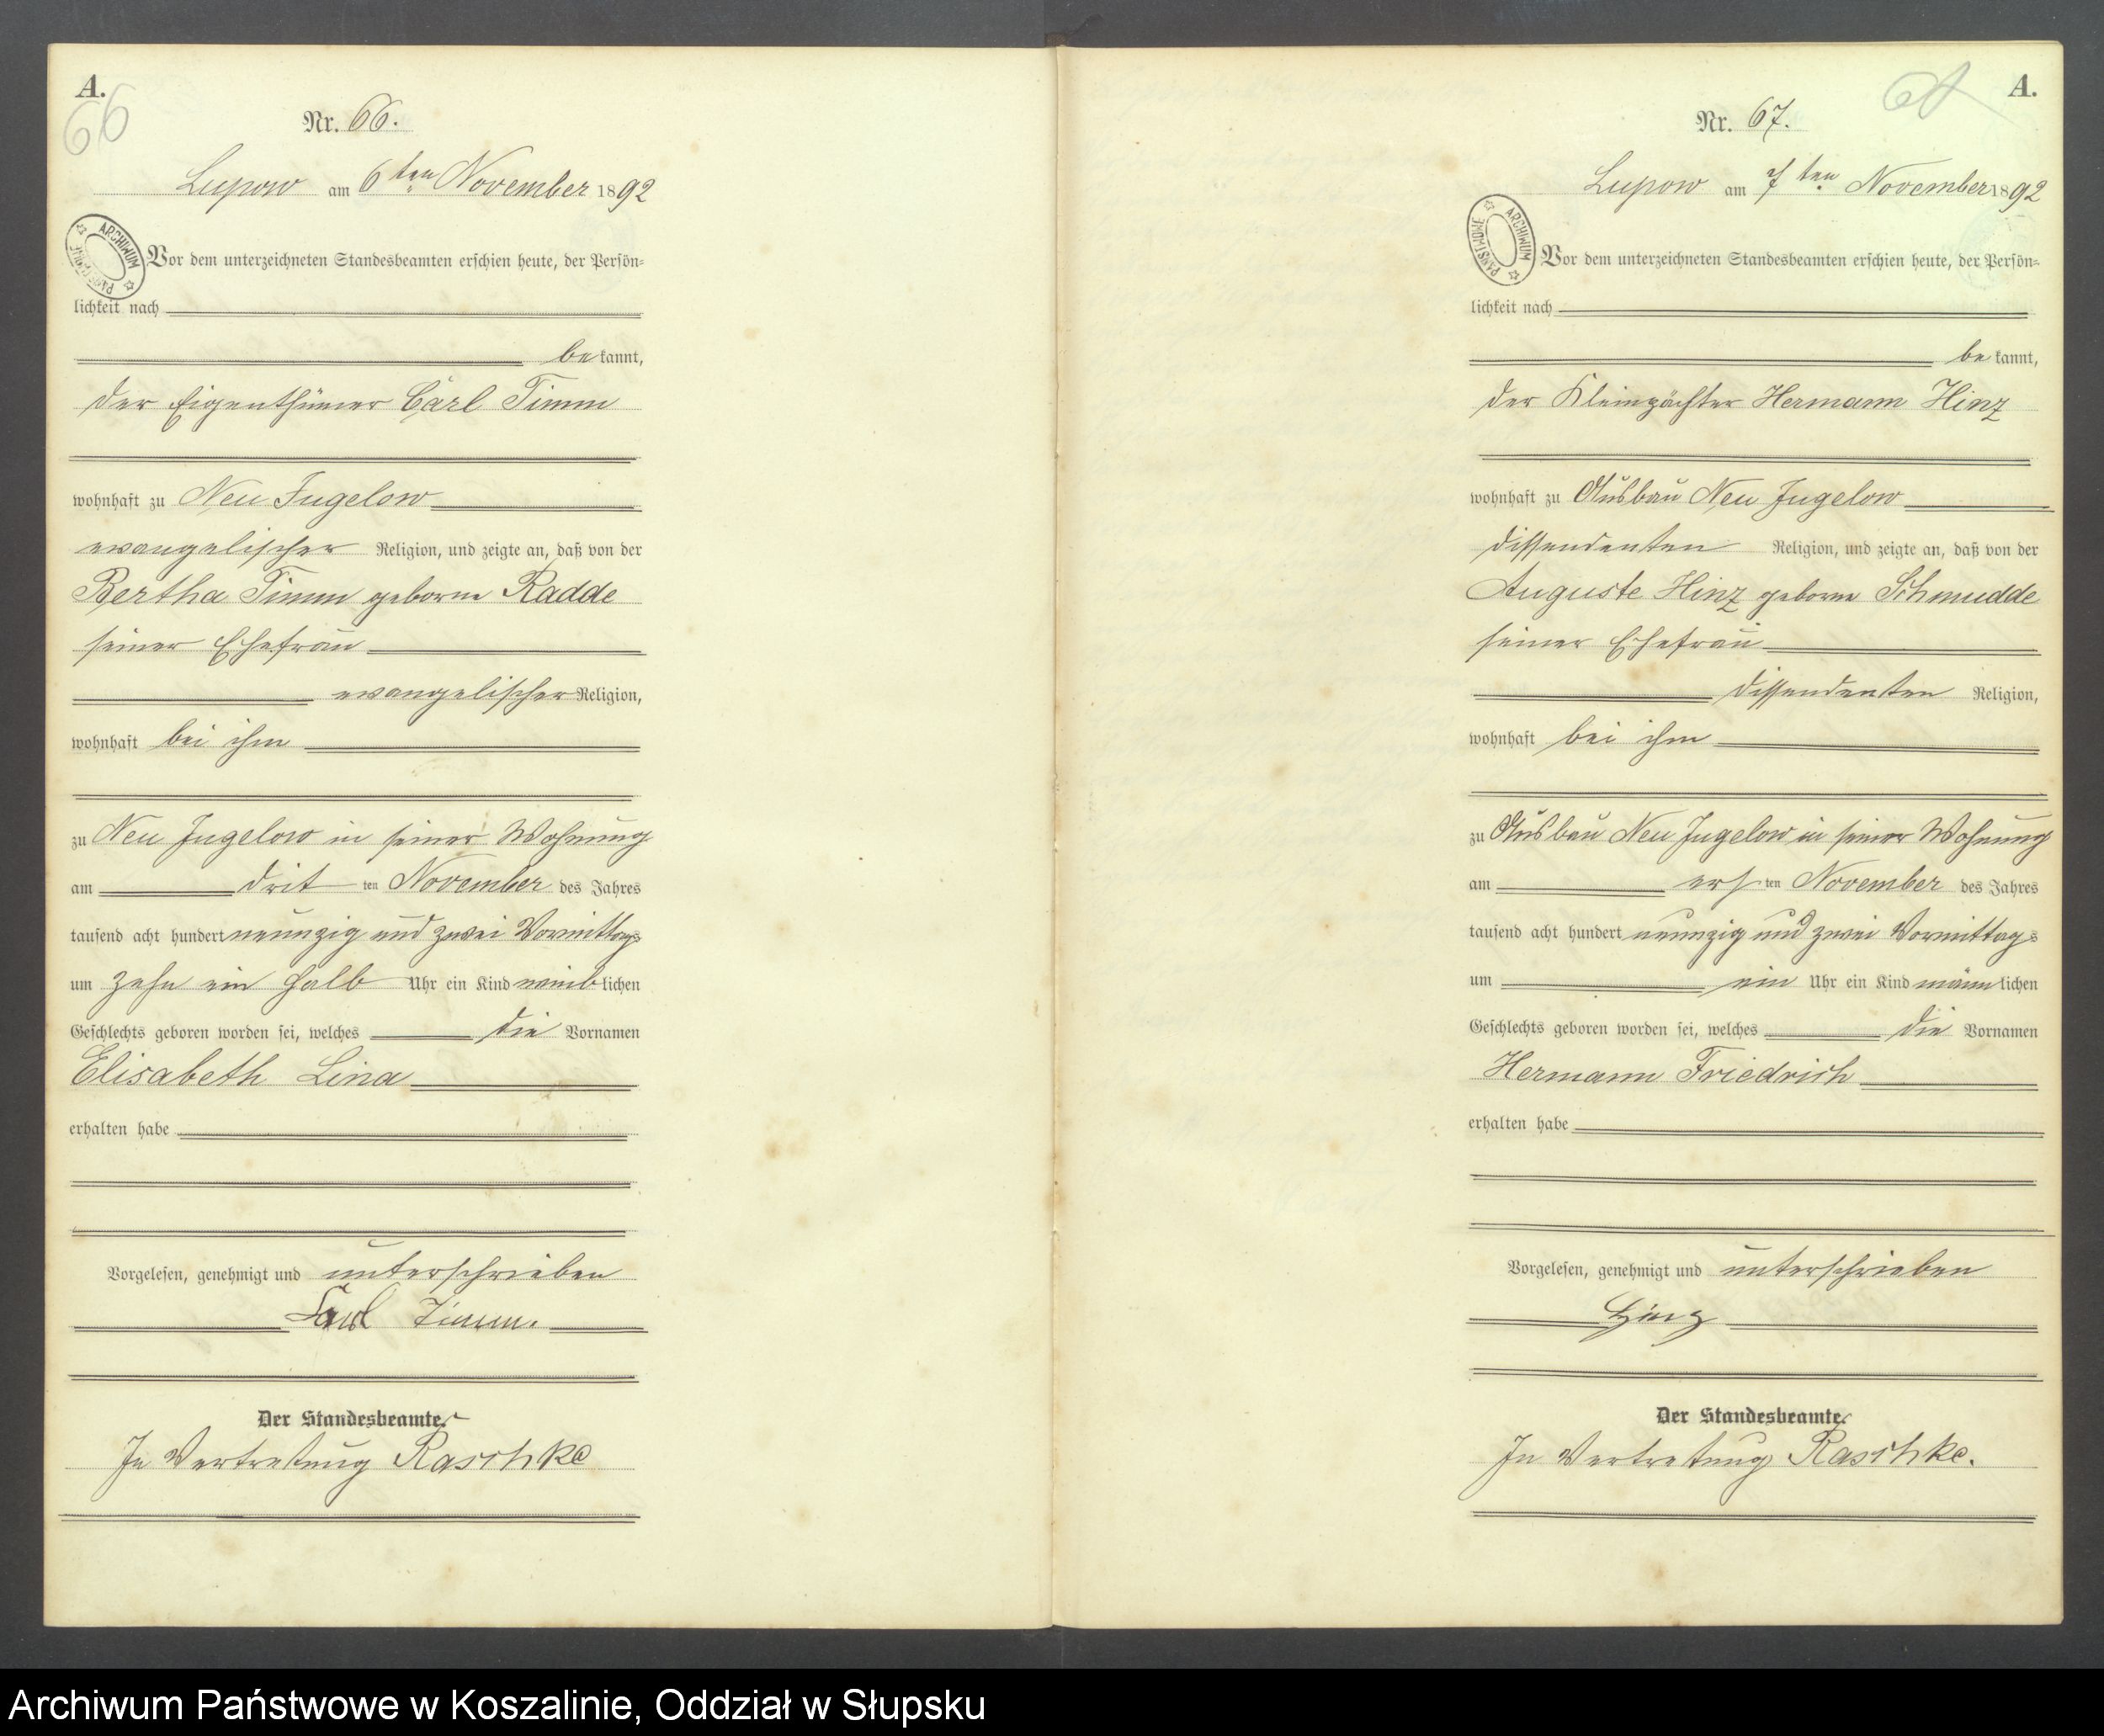 A.
66
Nr. 66.
Lupow am 6ten November 1892
ARCHIWUM PAŃSTWOWE
Vor dem unterzeichneten Standesbeamten erschien heute, der Persön-
lichkeit nach
be kannt,
der Eigenthümer Carl Timm
wohnhaft zu Neu Jugelow
evangelischer Religion, und zeigte an, daß von der
Bertha Timm geborne Radde
seiner Ehefrau
evangelischer Religion,
wohnhaft bei ihm
zu Neu Jugelow in seiner Wohnung
am drit ten November des Jahres
tausend acht hundert neunzig und zwei Vormittags
um zehn ein halb Uhr ein Kind weib lichen
Geschlechts geboren worden sei, welches die Vornamen
Elisabeth Lina
erhalten habe
Vorgelesen, genehmigt und unterschrieben
Carl Timm.
Der Standesbeamte.
In Vertretung Raschke
A.
Nr. 67.
Lupow am 7ten November 1892
ARCHIWUM PAŃSTWOWE
Vor dem unterzeichneten Standesbeamten erschien heute, der Persön-
lichkeit nach
be kannt,
der Kleinpächter Hermann Hinz
wohnhaft zu Ausbau Neu Jugelow
dissendenten Religion, und zeigte an, daß von der
Auguste Hinz geborne Schmudde
seiner Ehefrau
dissendenten Religion,
wohnhaft bei ihm
zu Ausbau Neu Jugelow in seiner Wohnung
am ers ten November des Jahres
tausend acht hundert neunzig und zwei Vormittags
um ein Uhr ein Kind männ lichen
Geschlechts geboren worden sei, welches die Vornamen
Hermann Friedrich
erhalten habe
Vorgelesen, genehmigt und unterschrieben
Hinz
Der Standesbeamte.
In Vertretung Raschke.
Archiwum Państwowe w Koszalinie, Oddział w Słupsku